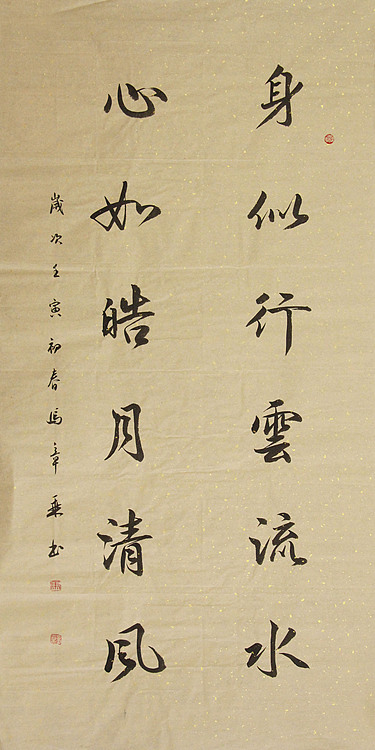 身似行雲流水
心如皓月清風
歲次壬寅初春馮章乘書